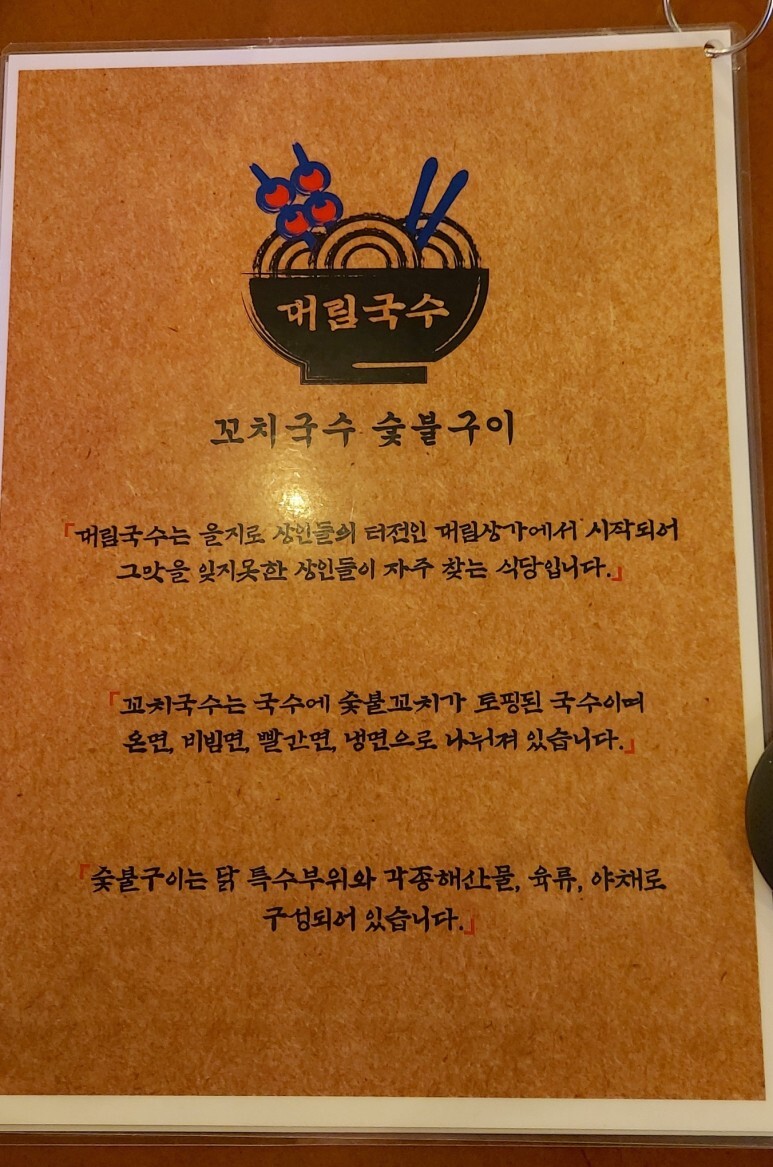 대림국수
꼬치국수 숯불구이
「대림국수는 을지로 상인들의 터전인 대림상가에서 시작되어
그맛을 잊지못한 상인들이 자주 찾는 식당입니다.」
「꼬치국수는 국수에 숯불꼬치가 토핑된 국수이며
온면, 비빔면, 빨간면, 냉면으로 나뉘져 있습니다.」
「숯불구이는 닭 특수부위와 각종해산물, 육류, 야채로
구성되어 있습니다.」